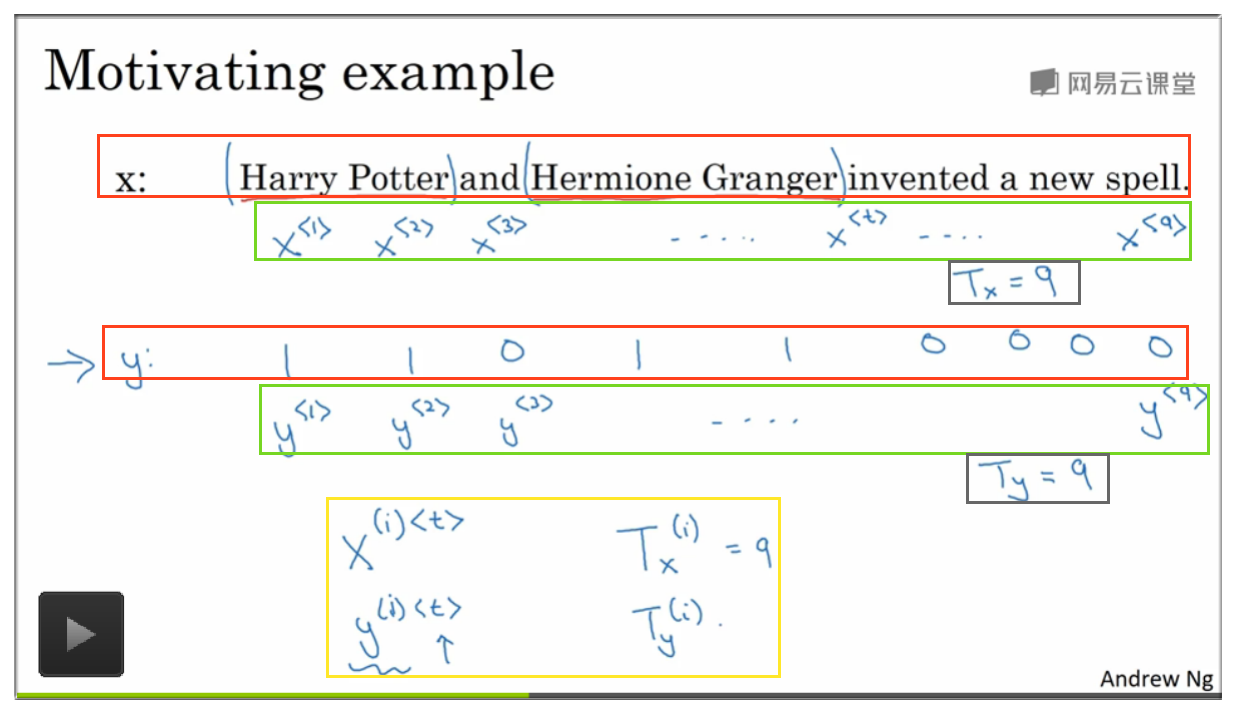 Motivating example
网易云课堂
x: (Harry Potter) and (Hermione Granger) invented a new spell.
x<1> x<2> x<3> - ···· x<t> - ···· x<9>
Tx = 9
→ y: 1 1 0 1 1 0 0 0 0
y<1> y<2> y<3> - ···· y<9>
Ty = 9
X(i)<t> Tx(i) = 9
y(i)<t> Ty(i) .
↑
Andrew Ng